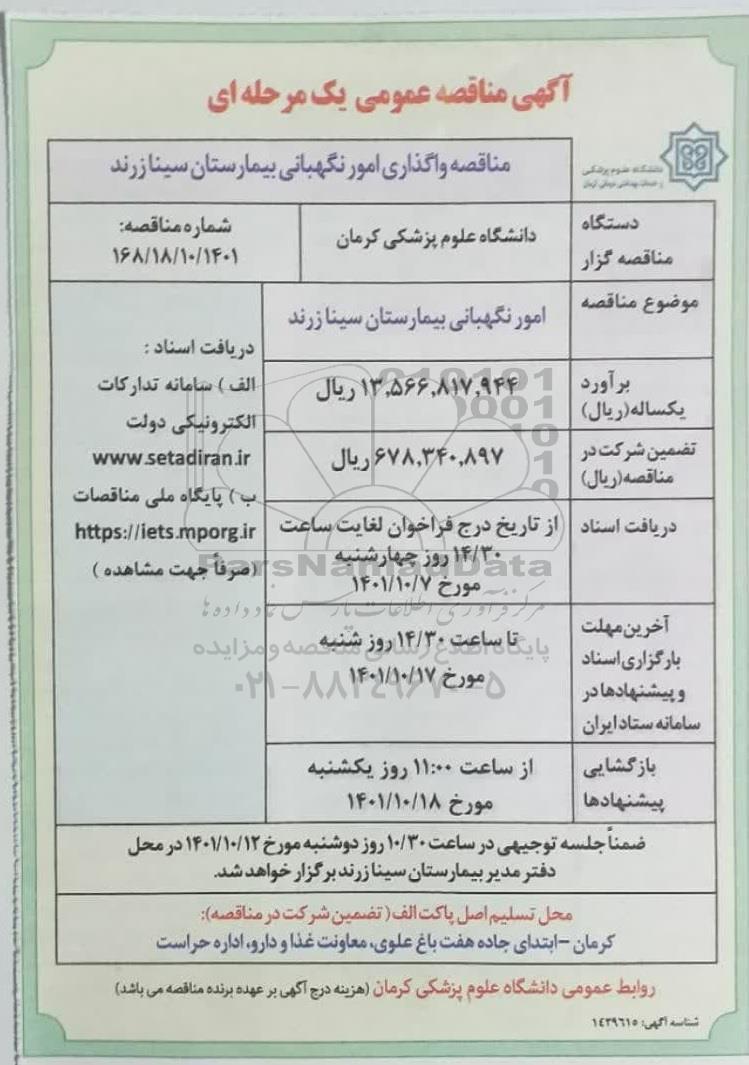 آگهی مناقصه عمومی یک مرحله ای
دانشگاه علوم پزشکی
و خدمات بهداشتی درمانی کرمان
مناقصه واگذاری امور نگهبانی بیمارستان سینا زرند
دستگاه
مناقصه گزار
دانشگاه علوم پزشکی کرمان
شماره مناقصه:
۱۶۸/۱۸/۱۰/۱۴۰۱
موضوع مناقصه
امور نگهبانی بیمارستان سینا زرند
برآورد
یکساله(ریال)
۱۳,۵۶۶,۸۱۷,۹۴۴ ریال
تضمین شرکت در
مناقصه(ریال)
۶۷۸,۳۴۰,۸۹۷ ریال
دریافت اسناد
از تاریخ درج فراخوان لغایت ساعت
۱۴/۳۰ روز چهارشنبه
مورخ ۱۴۰۱/۱۰/۷
آخرین مهلت
بارگزاری اسناد
و پیشنهادها در
سامانه ستاد ایران
تا ساعت ۱۴/۳۰ روز شنبه
مورخ ۱۴۰۱/۱۰/۱۷
بازگشایی
پیشنهادها
از ساعت ۱۱:۰۰ روز یکشنبه
مورخ ۱۴۰۱/۱۰/۱۸
دریافت اسناد :
الف ) سامانه تدارکات
الکترونیکی دولت
www.setadiran.ir
ب ) پایگاه ملی مناقصات
https://iets.mporg.ir
(صرفاً جهت مشاهده )
ParsNamadData
مرکز فرآوری اطلاعات پارس نماد داده ها
پایگاه اطلاع رسانی مناقصه و مزایده
۰۲۱-۸۸۳۴۹۶۷۰-۵
ضمناً جلسه توجیهی در ساعت ۱۰/۳۰ روز دوشنبه مورخ ۱۴۰۱/۱۰/۱۲ در محل
دفتر مدیر بیمارستان سینا زرند برگزار خواهد شد.
محل تسلیم اصل پاکت الف( تضمین شرکت در مناقصه):
کرمان –ابتدای جاده هفت باغ علوی، معاونت غذا و دارو، اداره حراست
روابط عمومی دانشگاه علوم پزشکی کرمان (هزینه درج آگهی بر عهده برنده مناقصه می باشد)
شناسه آگهی: ۱۴۳۹۶۱۵